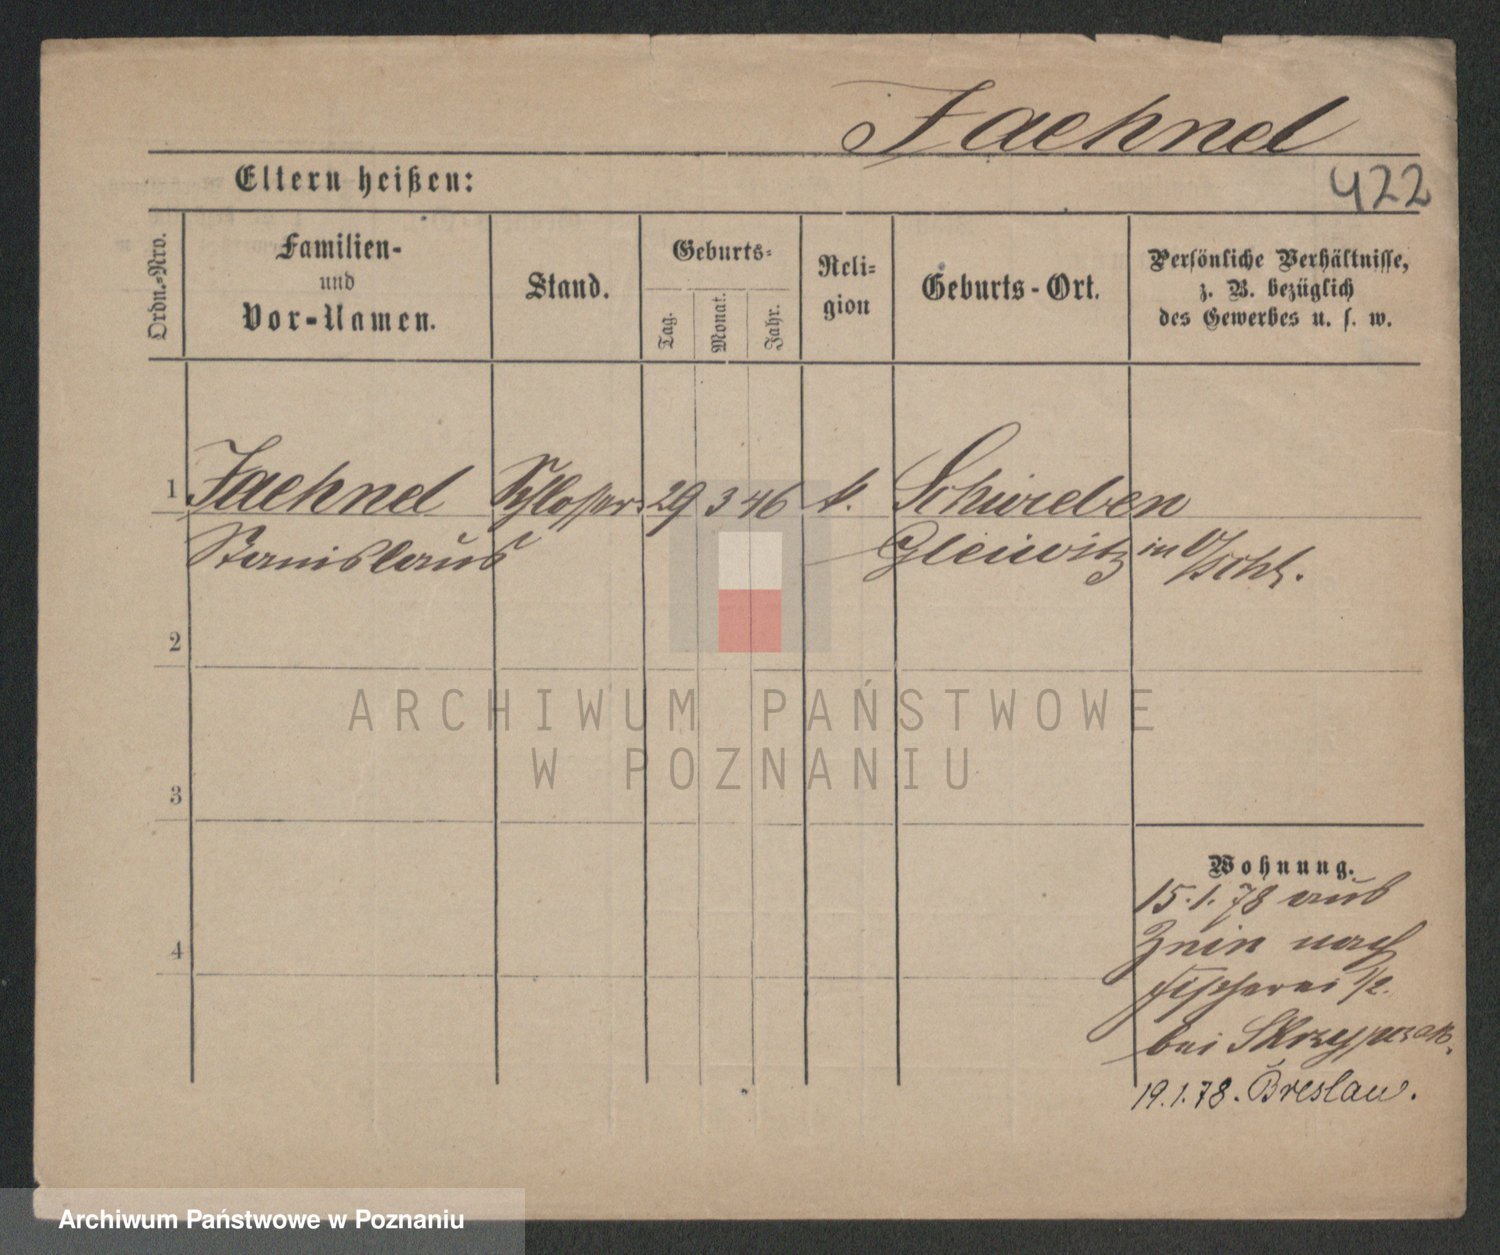 Jaehnel
Eltern heißen:
422
Ordn.-Nro.
Familien-
und
Vor-Namen.
Stand.
Geburts-
Tag.
Monat.
Jahr.
Reli-
gion
Geburts-Ort.
Persönliche Verhältnisse,
z. B. bezüglich
des Gewerbes u. s. w.
1 Jaehnel Schlosser 29 3 46 k. Schwieben
Stanislaus Gleiwitz in O/Schl.
2
3
4
Wohnung.
15.1.78 aus
Znin nach
Fischerei 1/2.
bei Skrzypczak.
19.1.78. Breslau.
ARCHIWUM PAŃSTWOWE
W POZNANIU
Archiwum Państwowe w Poznaniu